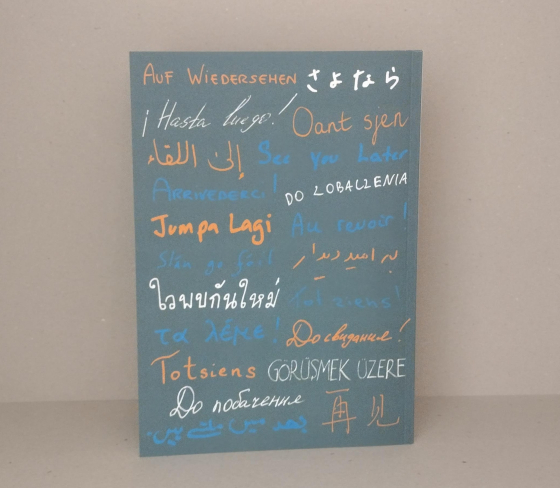 AUF WIEDERSEHEN さよなら
¡Hasta luego! Oant sjen
إلى اللقاء See you Later
ARRIVEDERCI! DO ZOBACZENIA
Jumpa Lagi Au revoir!
Slán go fóill به امید دیدار
ไวพบกันใหม่ Tot ziens!
τα λέμε! До свидания!
Totsiens GÖRÜŞMEK ÜZERE
До побачення 再见
بعد میں ملتے ہیں